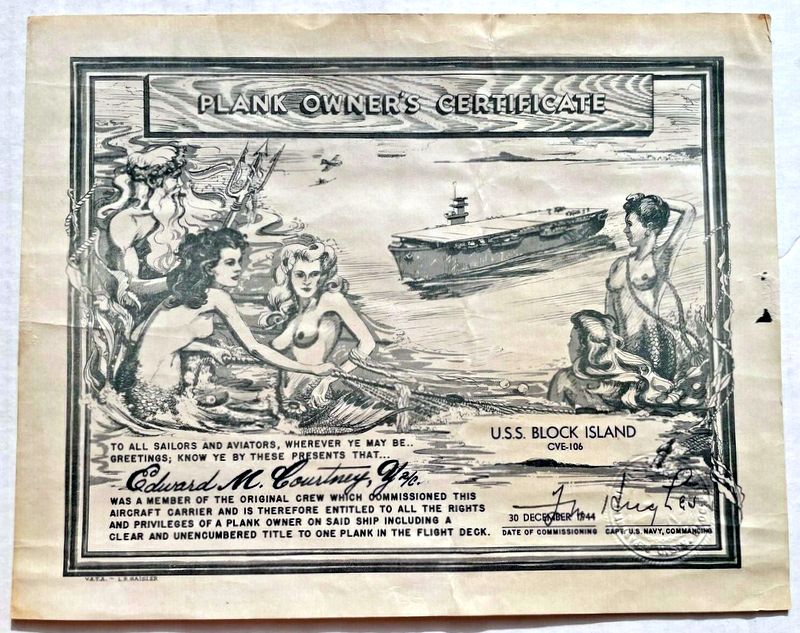 PLANK OWNER'S CERTIFICATE
TO ALL SAILORS AND AVIATORS, WHEREVER YE MAY BE..
GREETINGS; KNOW YE BY THESE PRESENTS THAT...
Edward M. Courtney, Y2/c.
WAS A MEMBER OF THE ORIGINAL CREW WHICH COMMISSIONED THIS
AIRCRAFT CARRIER AND IS THEREFORE ENTITLED TO ALL THE RIGHTS
AND PRIVILEGES OF A PLANK OWNER ON SAID SHIP INCLUDING A
CLEAR AND UNENCUMBERED TITLE TO ONE PLANK IN THE FLIGHT DECK.
U.S.S. BLOCK ISLAND
CVE-106
30 DECEMBER 1944
DATE OF COMMISSIONING
Hughes
CAPT. U.S. NAVY, COMMANDING